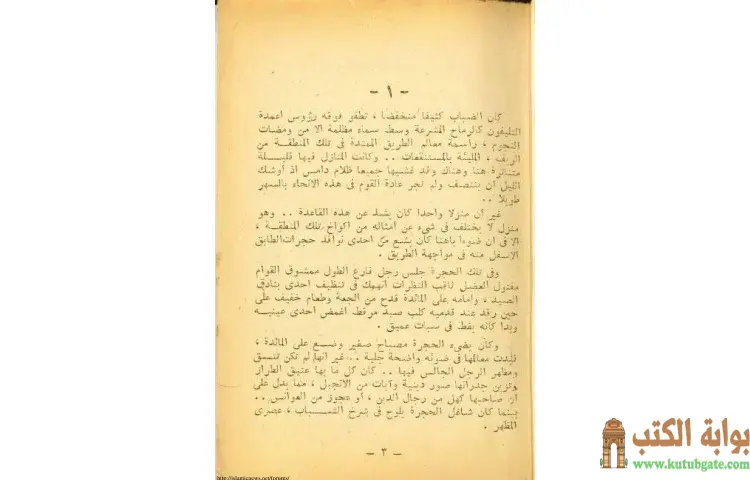 - ١ -
كان الضباب كثيفا منخفضا ، تطفو فوقه رؤوس اعمدة
التليفون كالرماح المشرعة وسط سماء مظلمة الا من ومضات
النجوم ، راسمة معالم الطريق الممتدة فى تلك المنطقة من
الريف ، المليئة بالمستنقعات .. وكانت المنازل فيها قليلة
متناثرة هنا وهناك وقد غشيها جميعا ظلام دامس اذ أوشك
الليل ان ينتصف ولم تجر عادة القوم فى هذه الانحاء بالسهر
طويلا ..
غير ان منزلا واحدا كان يشذ عن هذه القاعدة .. وهو
منزل لا يختلف فى شىء عن امثاله من اكواخ تلك المنطقة ،
الا فى ان ضوءا باهتا كان يشع من احدى نوافذ حجرات الطابق
الاسفل منه فى مواجهة الطريق .
وفى تلك الحجرة جلس رجل فارع الطول ممشوق القوام
مفتول العضل ثاقب النظرات انهمك فى تنظيف احدى بنادق
الصيد ، وامامه على المائدة قدح من الجعة وطعام خفيف على
حين رقد عند قدميه كلب صيد مرقط اغمض احدى عينيه
وبدا كانه يغط فى سبات عميق .
وكان يضىء الحجرة مصباح صغير وضع على المائدة ،
فبدت معالمها فى ضوئه واضحة جلية .. غير انها لم تكن تتسق
ومظهر الرجل الجالس فيها .. كان كل ما بها عتيق الطراز
وتزين جدرانها صور دينية وآيات من الانجيل ، مما يدل على
ان صاحبها كهل من رجال الدين ، أو عجوز من العوانس ..
بينما كان شاغل الحجرة يلوح فى شرخ الشباب ، عصرى
المظهر .
- ٣ -
بوابة الكتب
www.kutubgate.com